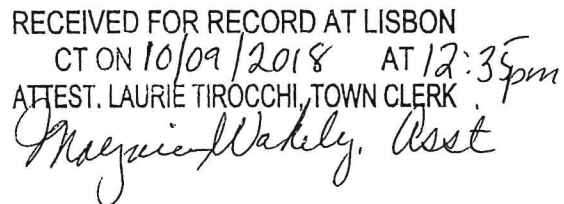 RECEIVED FOR RECORD AT LISBON
CT ON 10/09/2018 AT 12:35pm
ATTEST. LAURIE TIROCCHI, TOWN CLERK
Wakely, Asst